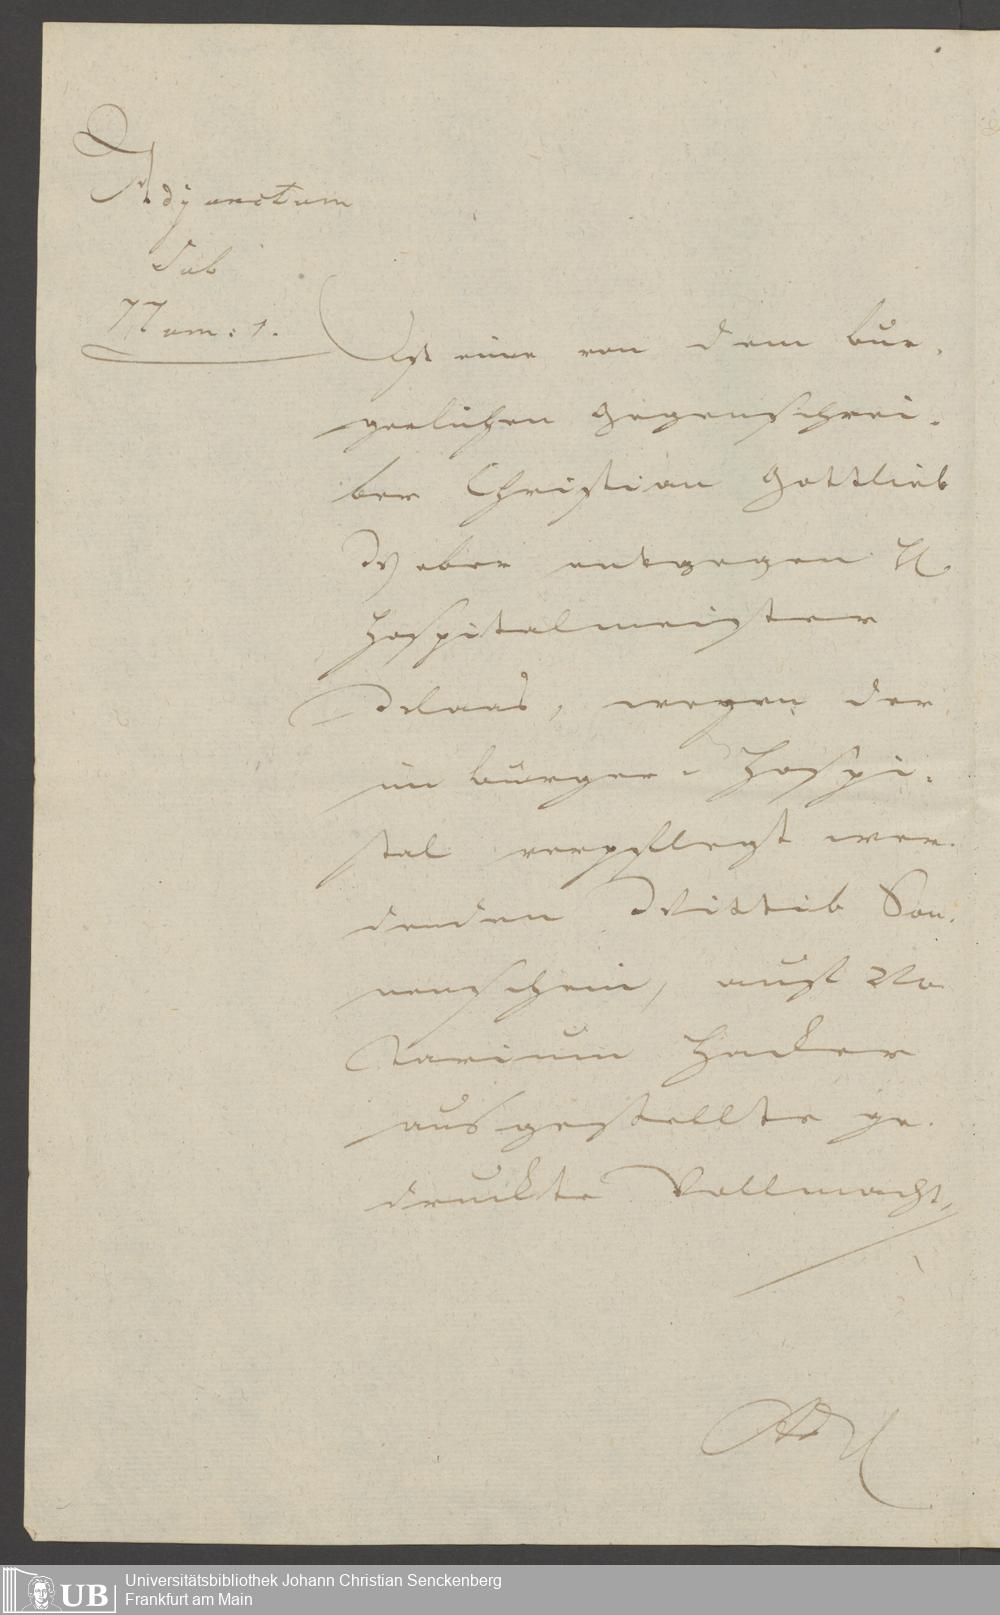 Adjunctum
Sub
Num: 1.
Ist eine von dem bur-
gerlichen Gegenschrei-
ber Christian Gottlieb
Weber entgegen H
Hospitalmeister
wegen der
im Bürger-Hospi-
tal verpflegt wer-
denden Wittib Son-
nenschein, auf No
tarium Hacker
ausgestellte ge-
druckte Vollmacht,
UB
Universitätsbibliothek Johann Christian Senckenberg
Frankfurt am Main